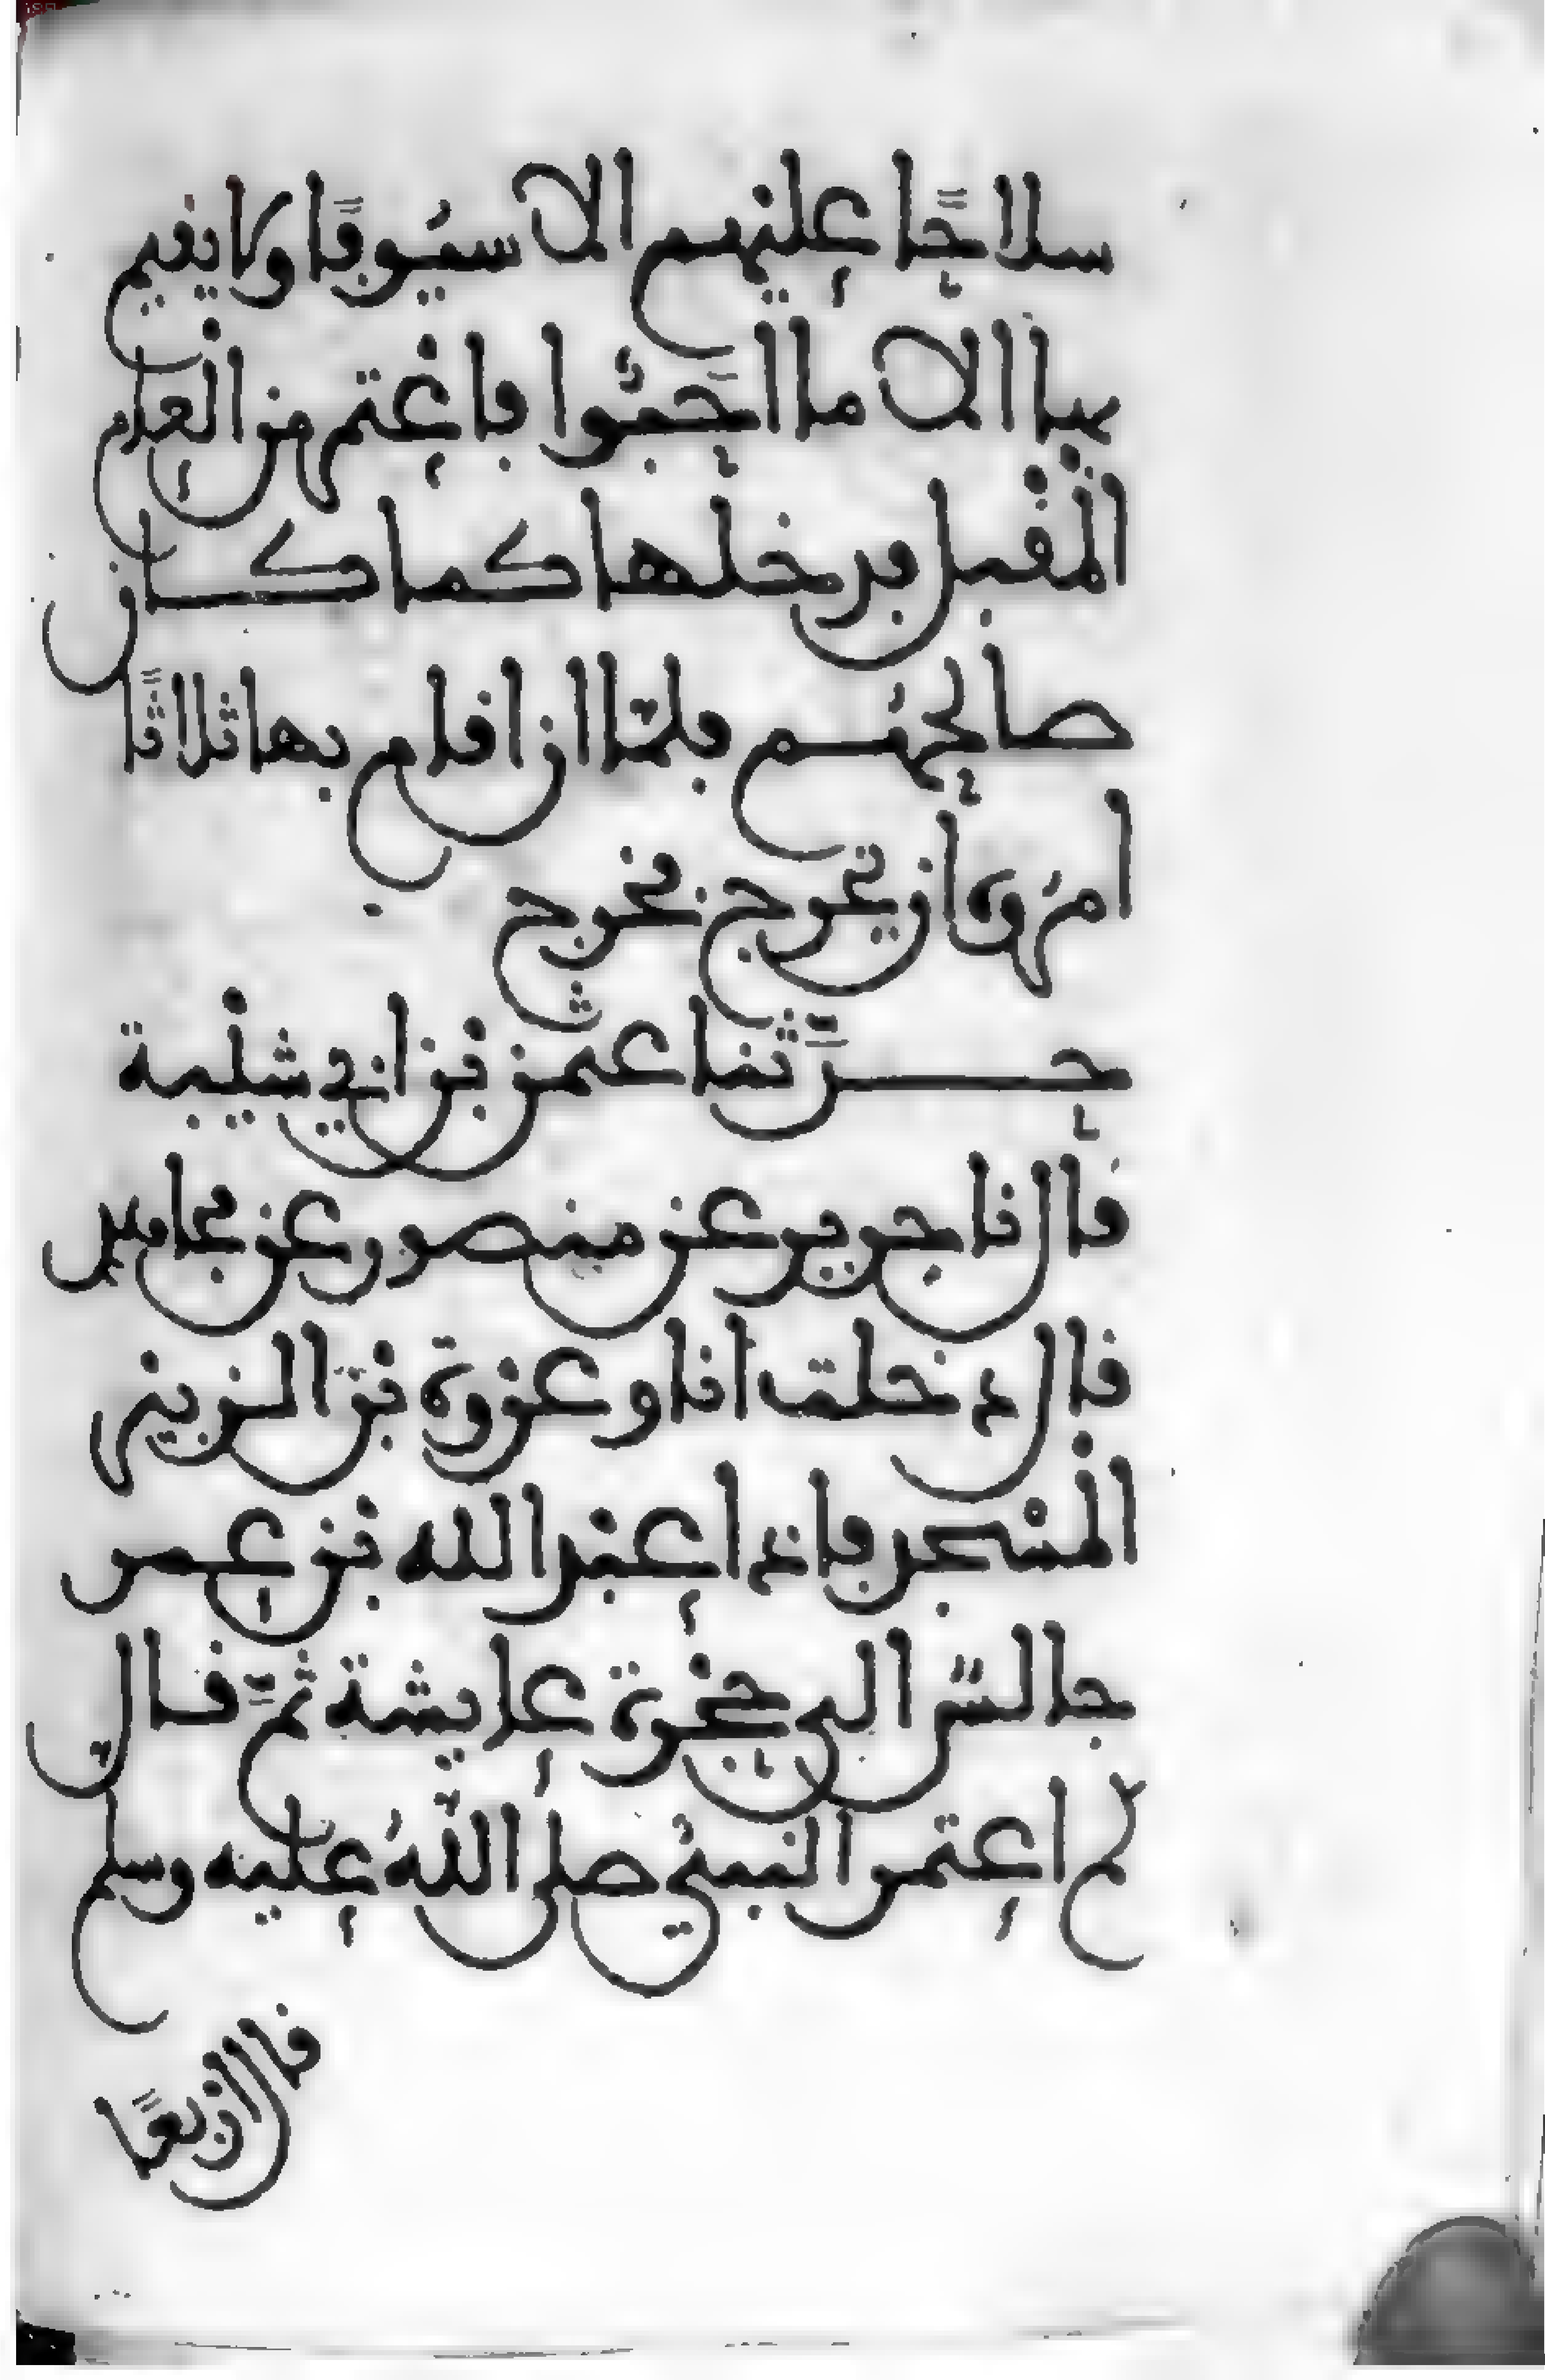 سلاحًا عليهم الا سيوفًا ولا يقيم
بها الا ما احبّوا فاعتمر من العام
المقبل فدخلها كما كان
صالحهم فلمّا ان اقام بها ثلاثًا
امروه ان يخرج فخرج
حدّثنا عثمن بن ابي شيبة
قال نا جرير عن منصور عن مجاهد
قال دخلت انا وعروة بن الزبير
المسجد فاذا عبد الله بن عمر
جالسٌ الى حجرة عايشة ثمّ قال
كم اعتمر النبي صلى اللهُ عليه وسلم
قال اربعًا